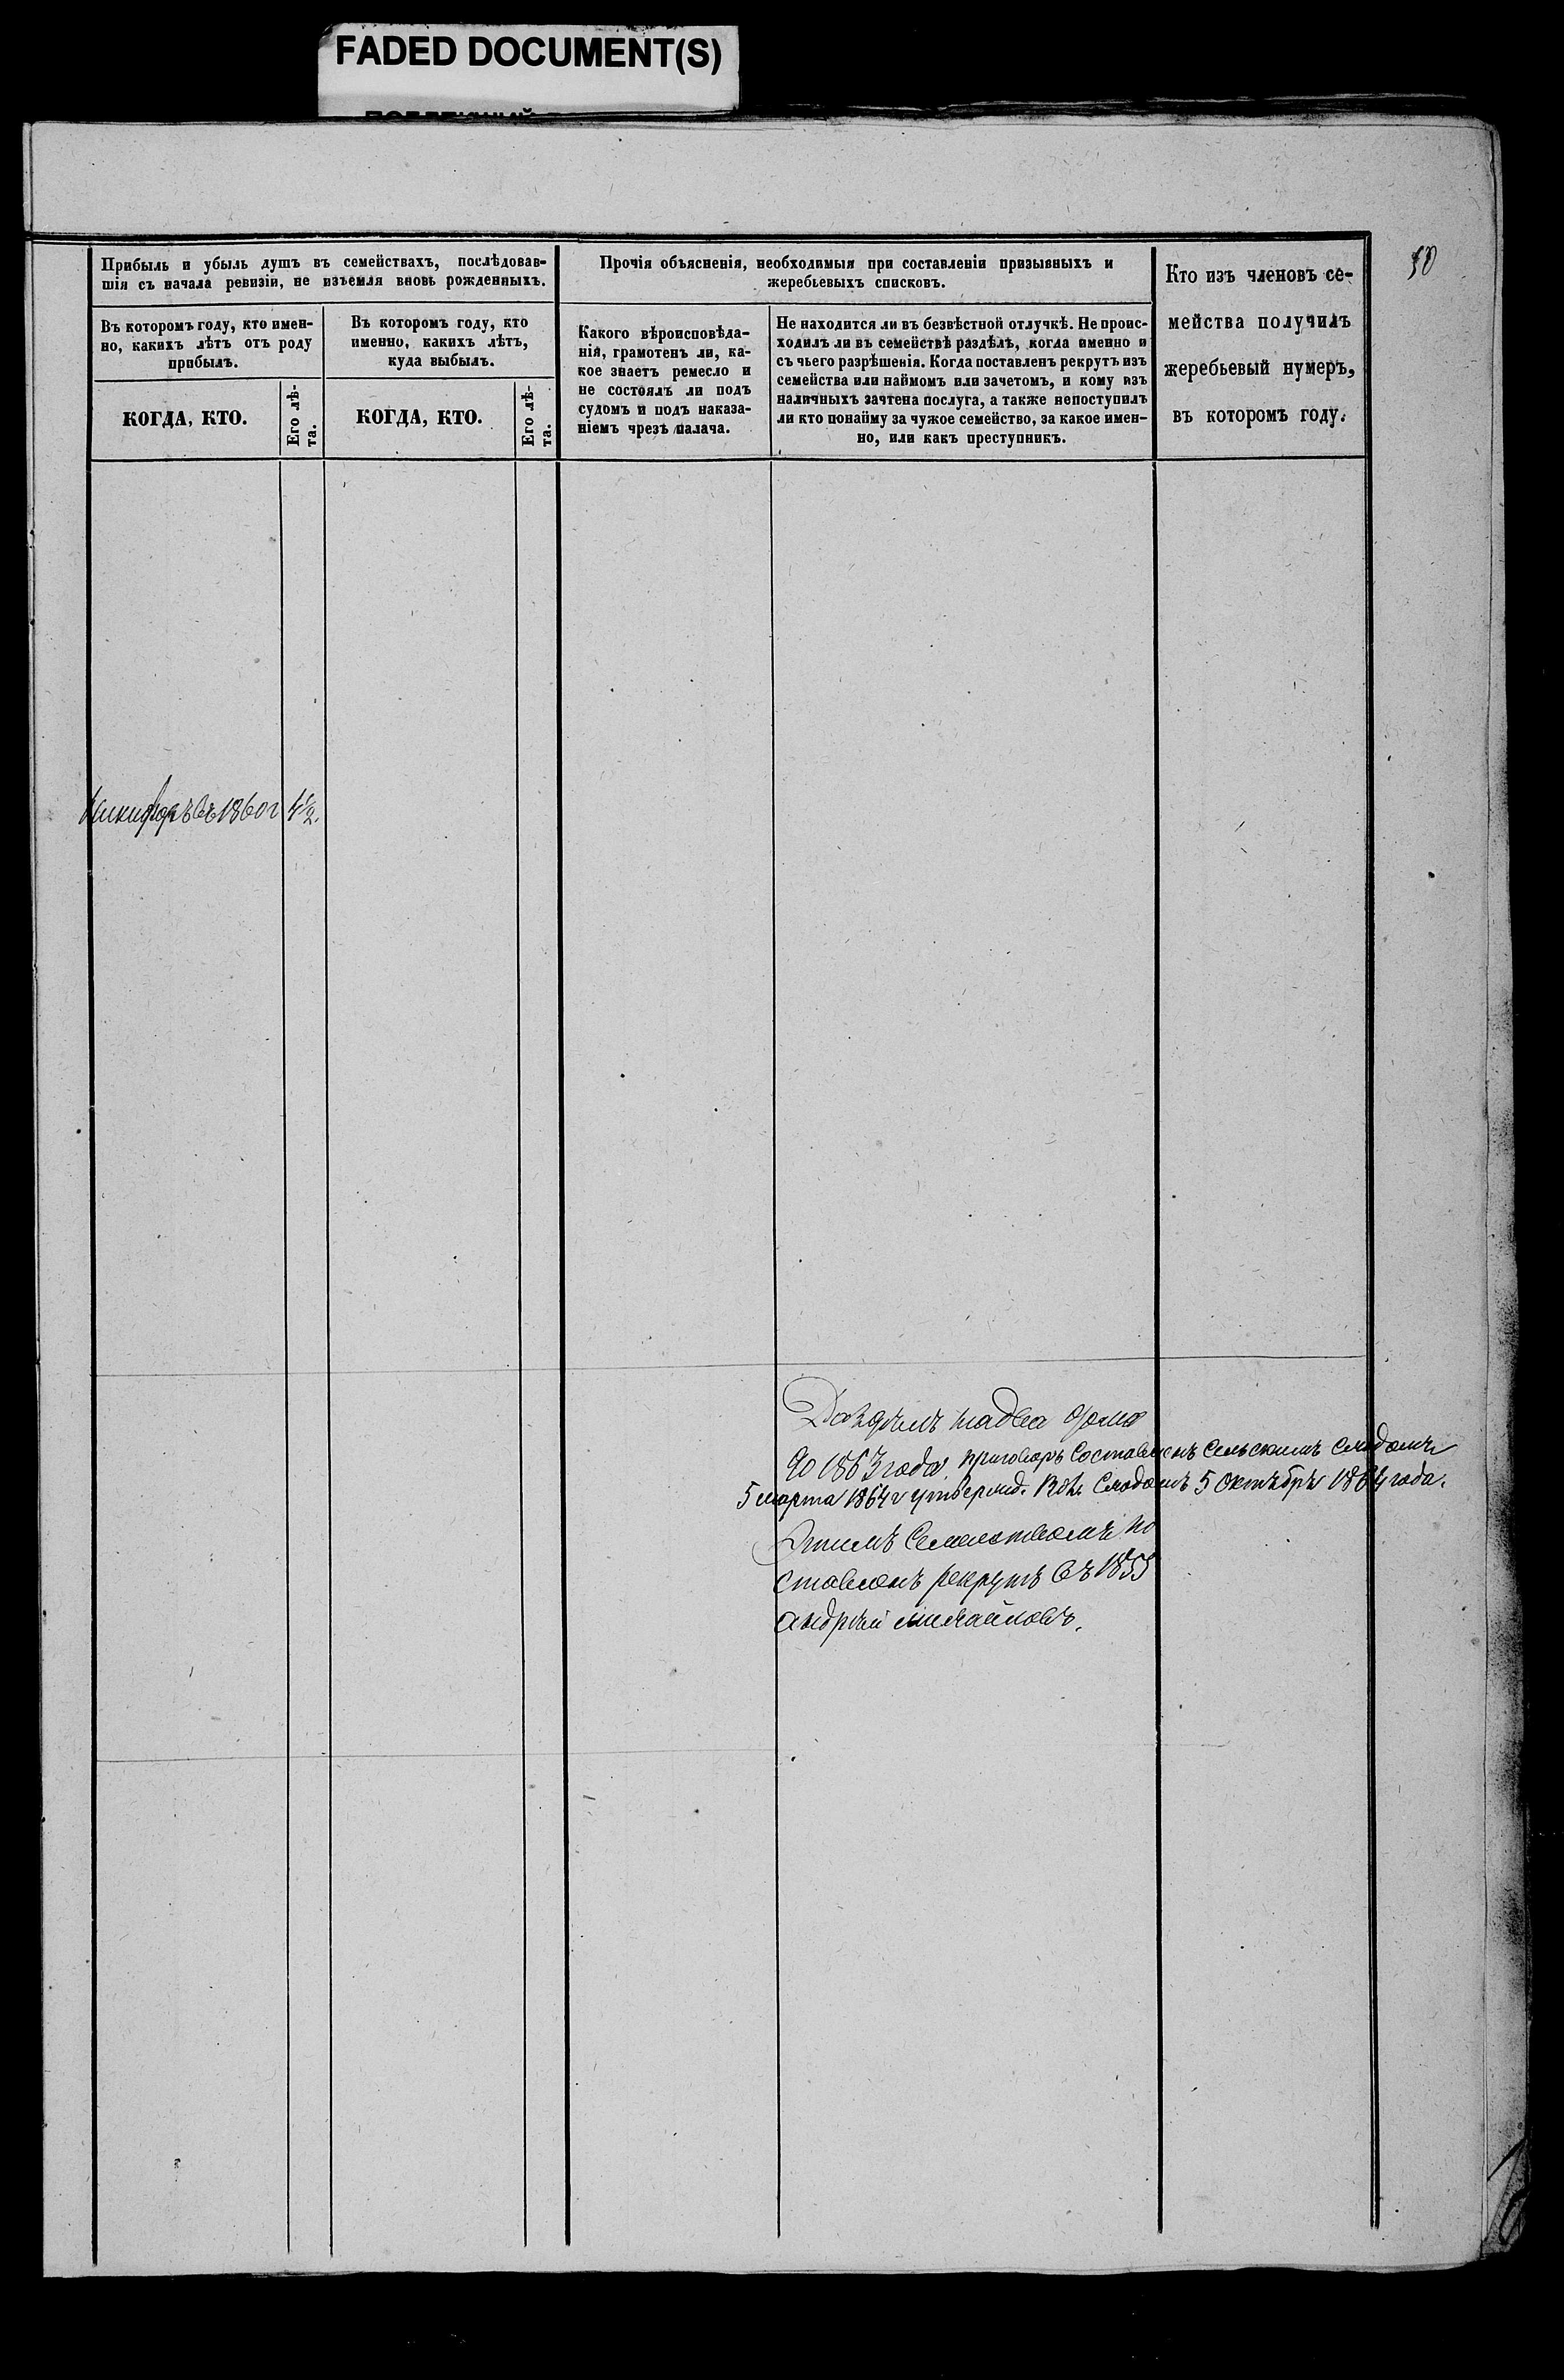 FADED DOCUMENT(S)
50
Прибыль и убыль душъ въ семействахъ, послѣдовав-
шія съ начала ревизіи, не изъемля вновь рожденныхъ.
Въ которомъ году, кто имен-
но, какихъ лѣтъ отъ роду
прибылъ.
КОГДА, КТО.
Его лѣ-
та.
Въ которомъ году, кто
именно, какихъ лѣтъ,
куда выбылъ.
КОГДА, КТО.
Его лѣ-
та.
Прочія объясненія, необходимыя при составленіи призывныхъ и
жеребьевыхъ списковъ.
Какого вѣроисповѣда-
нія, грамотенъ ли, ка-
кое знаетъ ремесло и
не состоялъ ли подъ
судомъ и подъ наказа-
ніемъ чрезъ палача.
Не находится ли въ безвѣстной отлучкѣ. Не проис-
ходилъ ли въ семействѣ раздѣлъ, когда именно и
съ чьего разрѣшенія. Когда поставленъ рекрутъ изъ
семейства или наймомъ или зачетомъ, и кому изъ
наличныхъ зачтена послуга, а также непоступилъ
ли кто понайму за чужое семейство, за какое имен-
но, или какъ преступникъ.
Кто изъ членовъ се-
мейства получилъ
жеребьевый нумеръ,
въ которомъ году.
Никифоръ въ 1860 г
надва
до 1863 года. приговоръ Составленъ Сельскимъ Сходомъ
5 марта 1864 г утвержд. Вол. Сходомъ 5 Октября 1864 года.
Этимъ Семействомъ по
ставленъ рекрутъ въ 1855
Андрей Михайловъ.